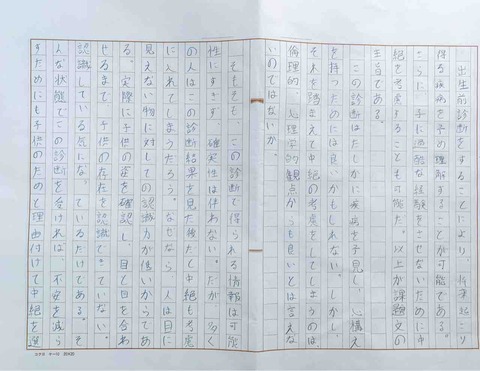 出生前診断をすることにより、将来起こり
得る疾病を予め理解することが可能である。
さらに、子に過酷な経験をさせないために中
絶を考慮することも可能だ。以上が課題文の
主旨である。
この診断はたしかに疾病を予見し、心構え
を持つためには良いかもしれない。しかし、
それを踏まえて中絶の考慮をしてしまうのは
倫理的、心理学的観点からも良いとは言えな
いのではないか。
そもそも、この診断で得られる情報は可能
性にすぎず、確実性は伴わない。だが、多く
の人はこの診断結果を見た後だと中絶も考慮
に入れてしまうだろう。なぜなら、人は目に
見えない物に対しての認識力が低いからであ
る。実際に子供の姿を確認し、目と目を合わ
せるまで、子供の存在を認識できていない。
認識している気になっているだけである。そ
んな状態でこの診断を受ければ、不安を減ら
すためにも子供のためと理由付けて中絶を選
コクヨ ケ-10 20×20